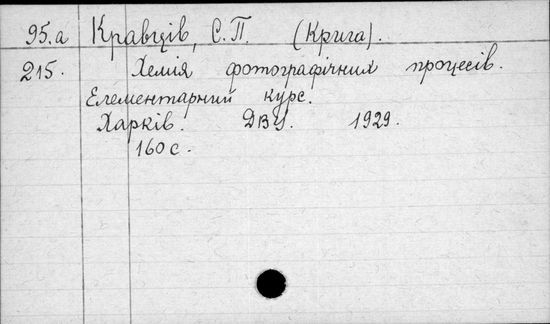 95.а Кравців, С.П. (Крига).
215. Хемія фотографічних процесів.
Елементарний курс.
Харків. ДВУ. 1929.
160 с.